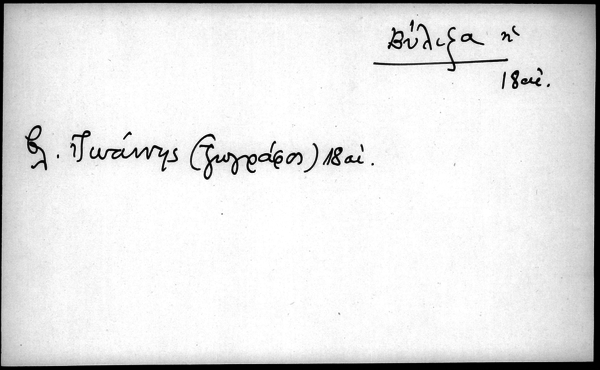 Βύλιζα
18 αἰ.
βλ. Ἰωάννης (ζωγράφος) 18 αἰ.